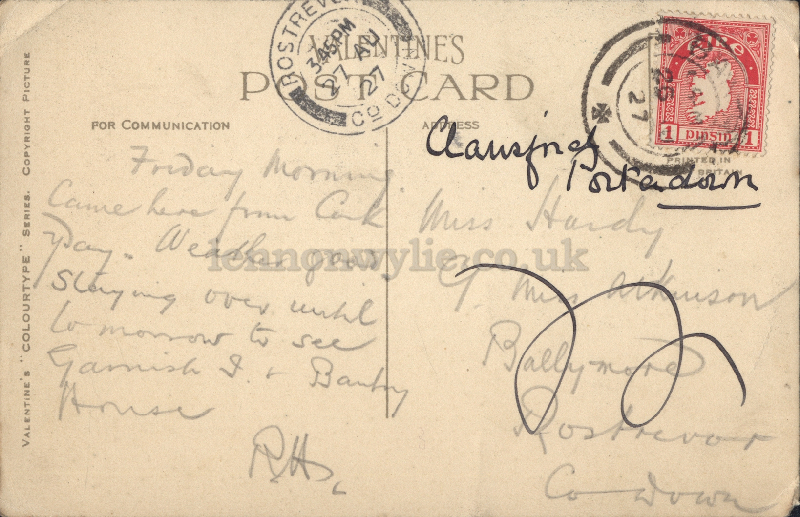 VALENTINE'S
POST CARD
FOR COMMUNICATION
ADDRESS
VALENTINE'S "COLOURTYPE" SERIES. COPYRIGHT PICTURE
ROSTREVOR
3.45PM
27 AU
27
Co DOWN
PRINTED IN
BRITAIN
1 pinsin 1
27
Friday Morning
Came here from Cork
Weather good
Staying over until
tomorrow to see
Garnish I & Bantry
House
R.H.
Portadown
Miss Hardy
c/o Miss Atkinson
Ballymore
Rostrevor
Co Down
lennonwylie.co.uk